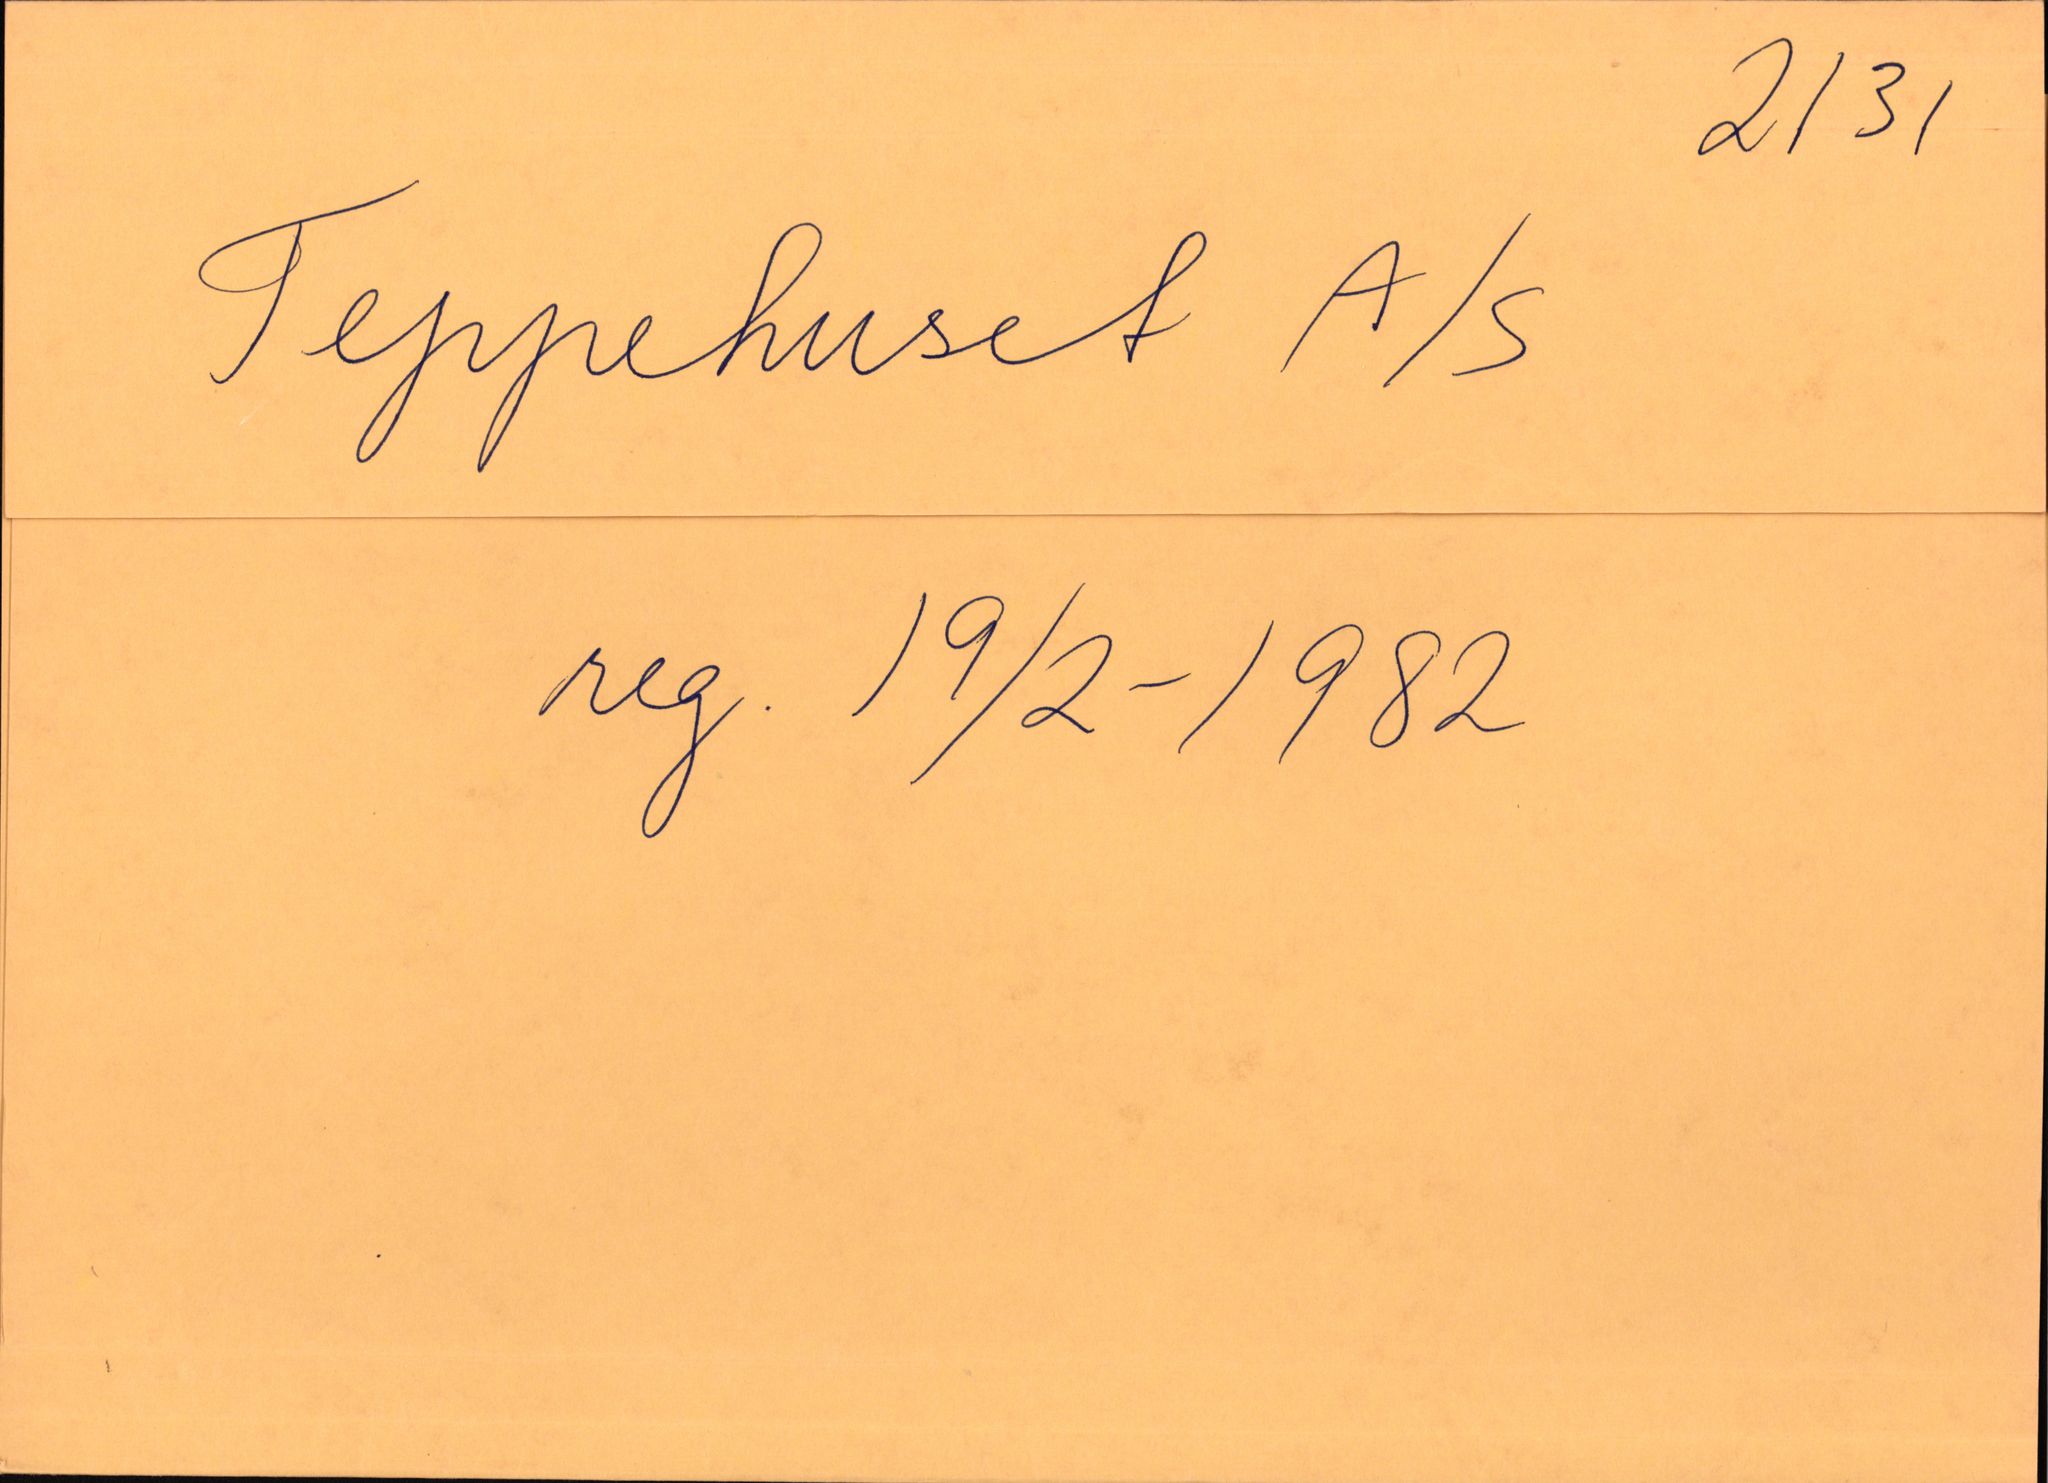 2131
Teppehuset A/S
reg. 19/2-1982